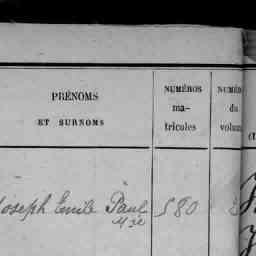 PRÉNOMS
ET SURNOMS
NUMÉROS
ma-
tricules
NUMÉ
du
volum
Joseph Emile Paul 580